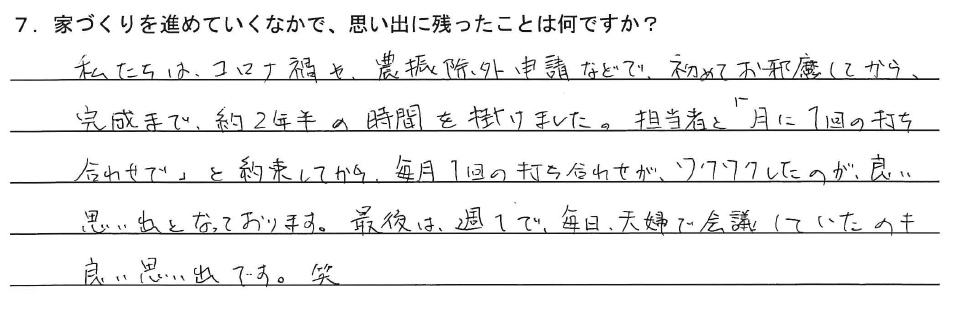 ７．家づくりを進めていくなかで、思い出に残ったことは何ですか？
私たちは、コロナ禍や、農振除外申請などで、初めてお邪魔してから、
完成まで、約2年半の時間を掛けました。担当者と「月に1回の打ち
合わせで」と約束してから、毎月1回の打ち合わせが、ワクワクしたのが、良い
思い出となっております。最後は、週1で、毎日、夫婦で会議していたのも
良い思い出です。笑